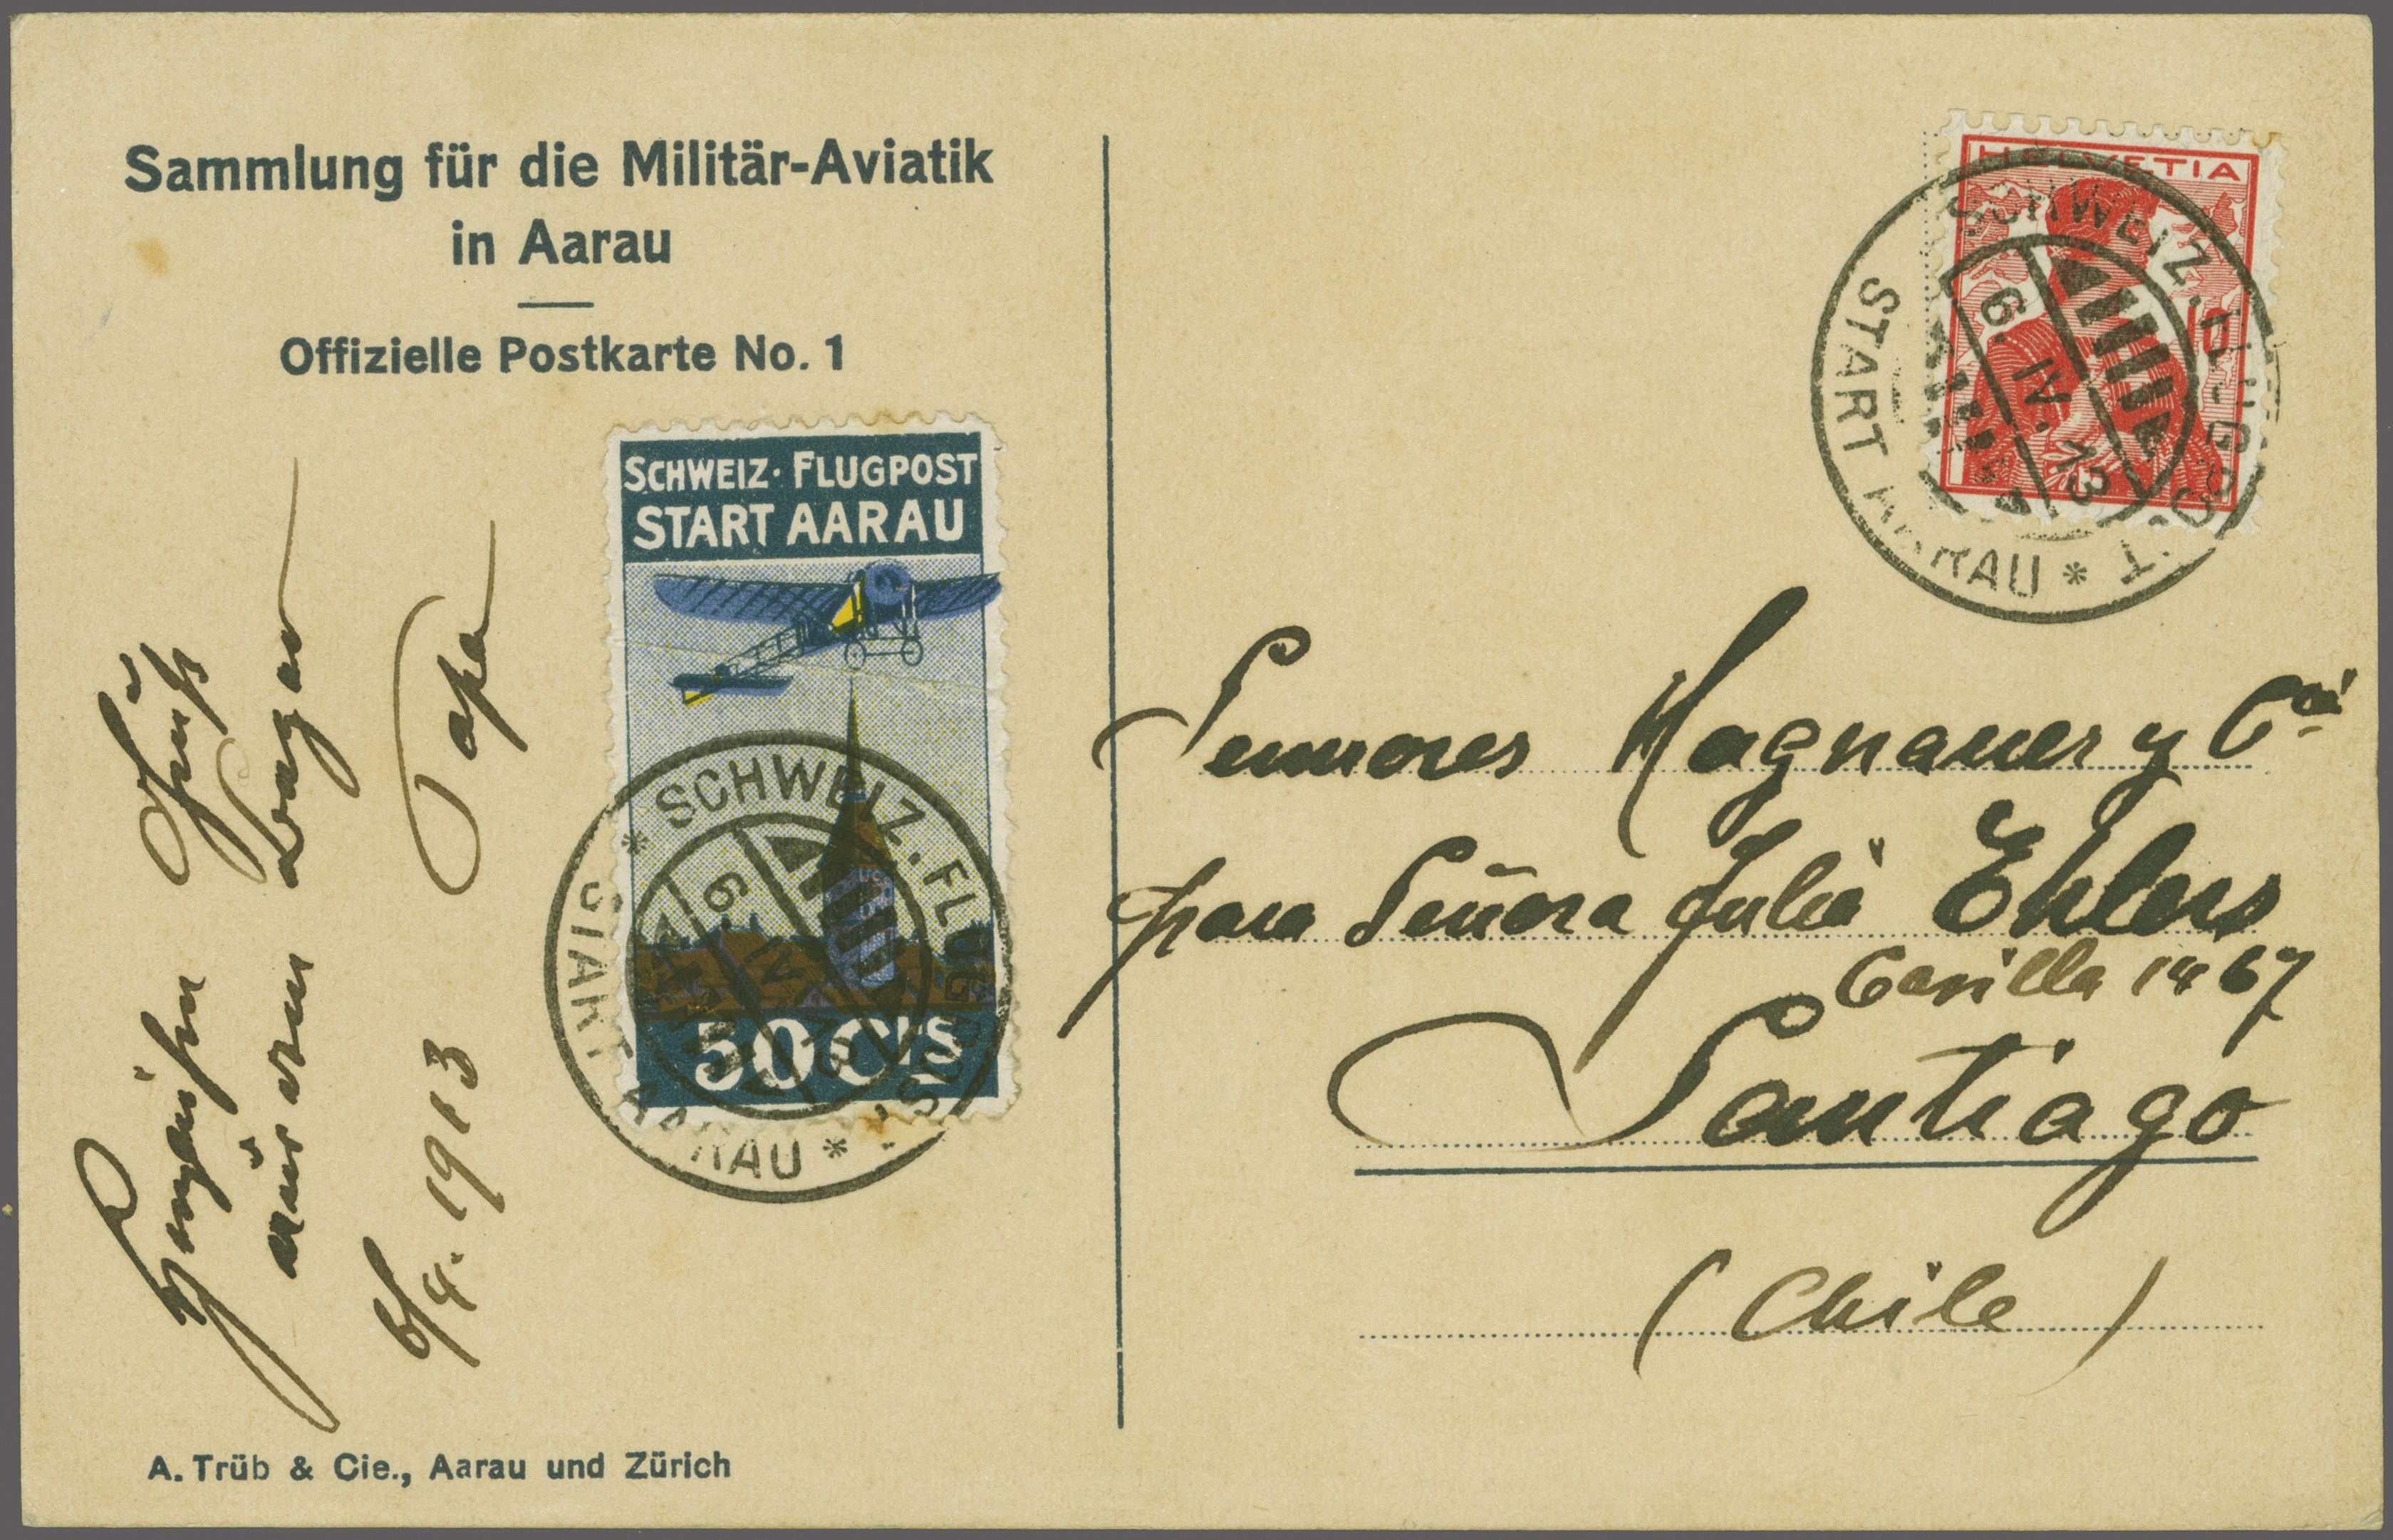 Sammlung für die Militär-Aviatik
in Aarau
Offizielle Postkarte No. 1
SCHWEIZ · FLUGPOST
START AARAU
50 Cts
* SCHWEIZ. FLUGPOST. * START AARAU
6. IV. 13
Gruss
Papa
6/4. 1913
A. Trüb & Cie., Aarau und Zürich
HELVETIA
10
SCHWEIZ. FLUGPOST. * START AARAU
6. IV. 13
Sennores Hagnauer y Cia
para Señora Julia Ehlers
Casilla 1467
Santiago
(Chile)